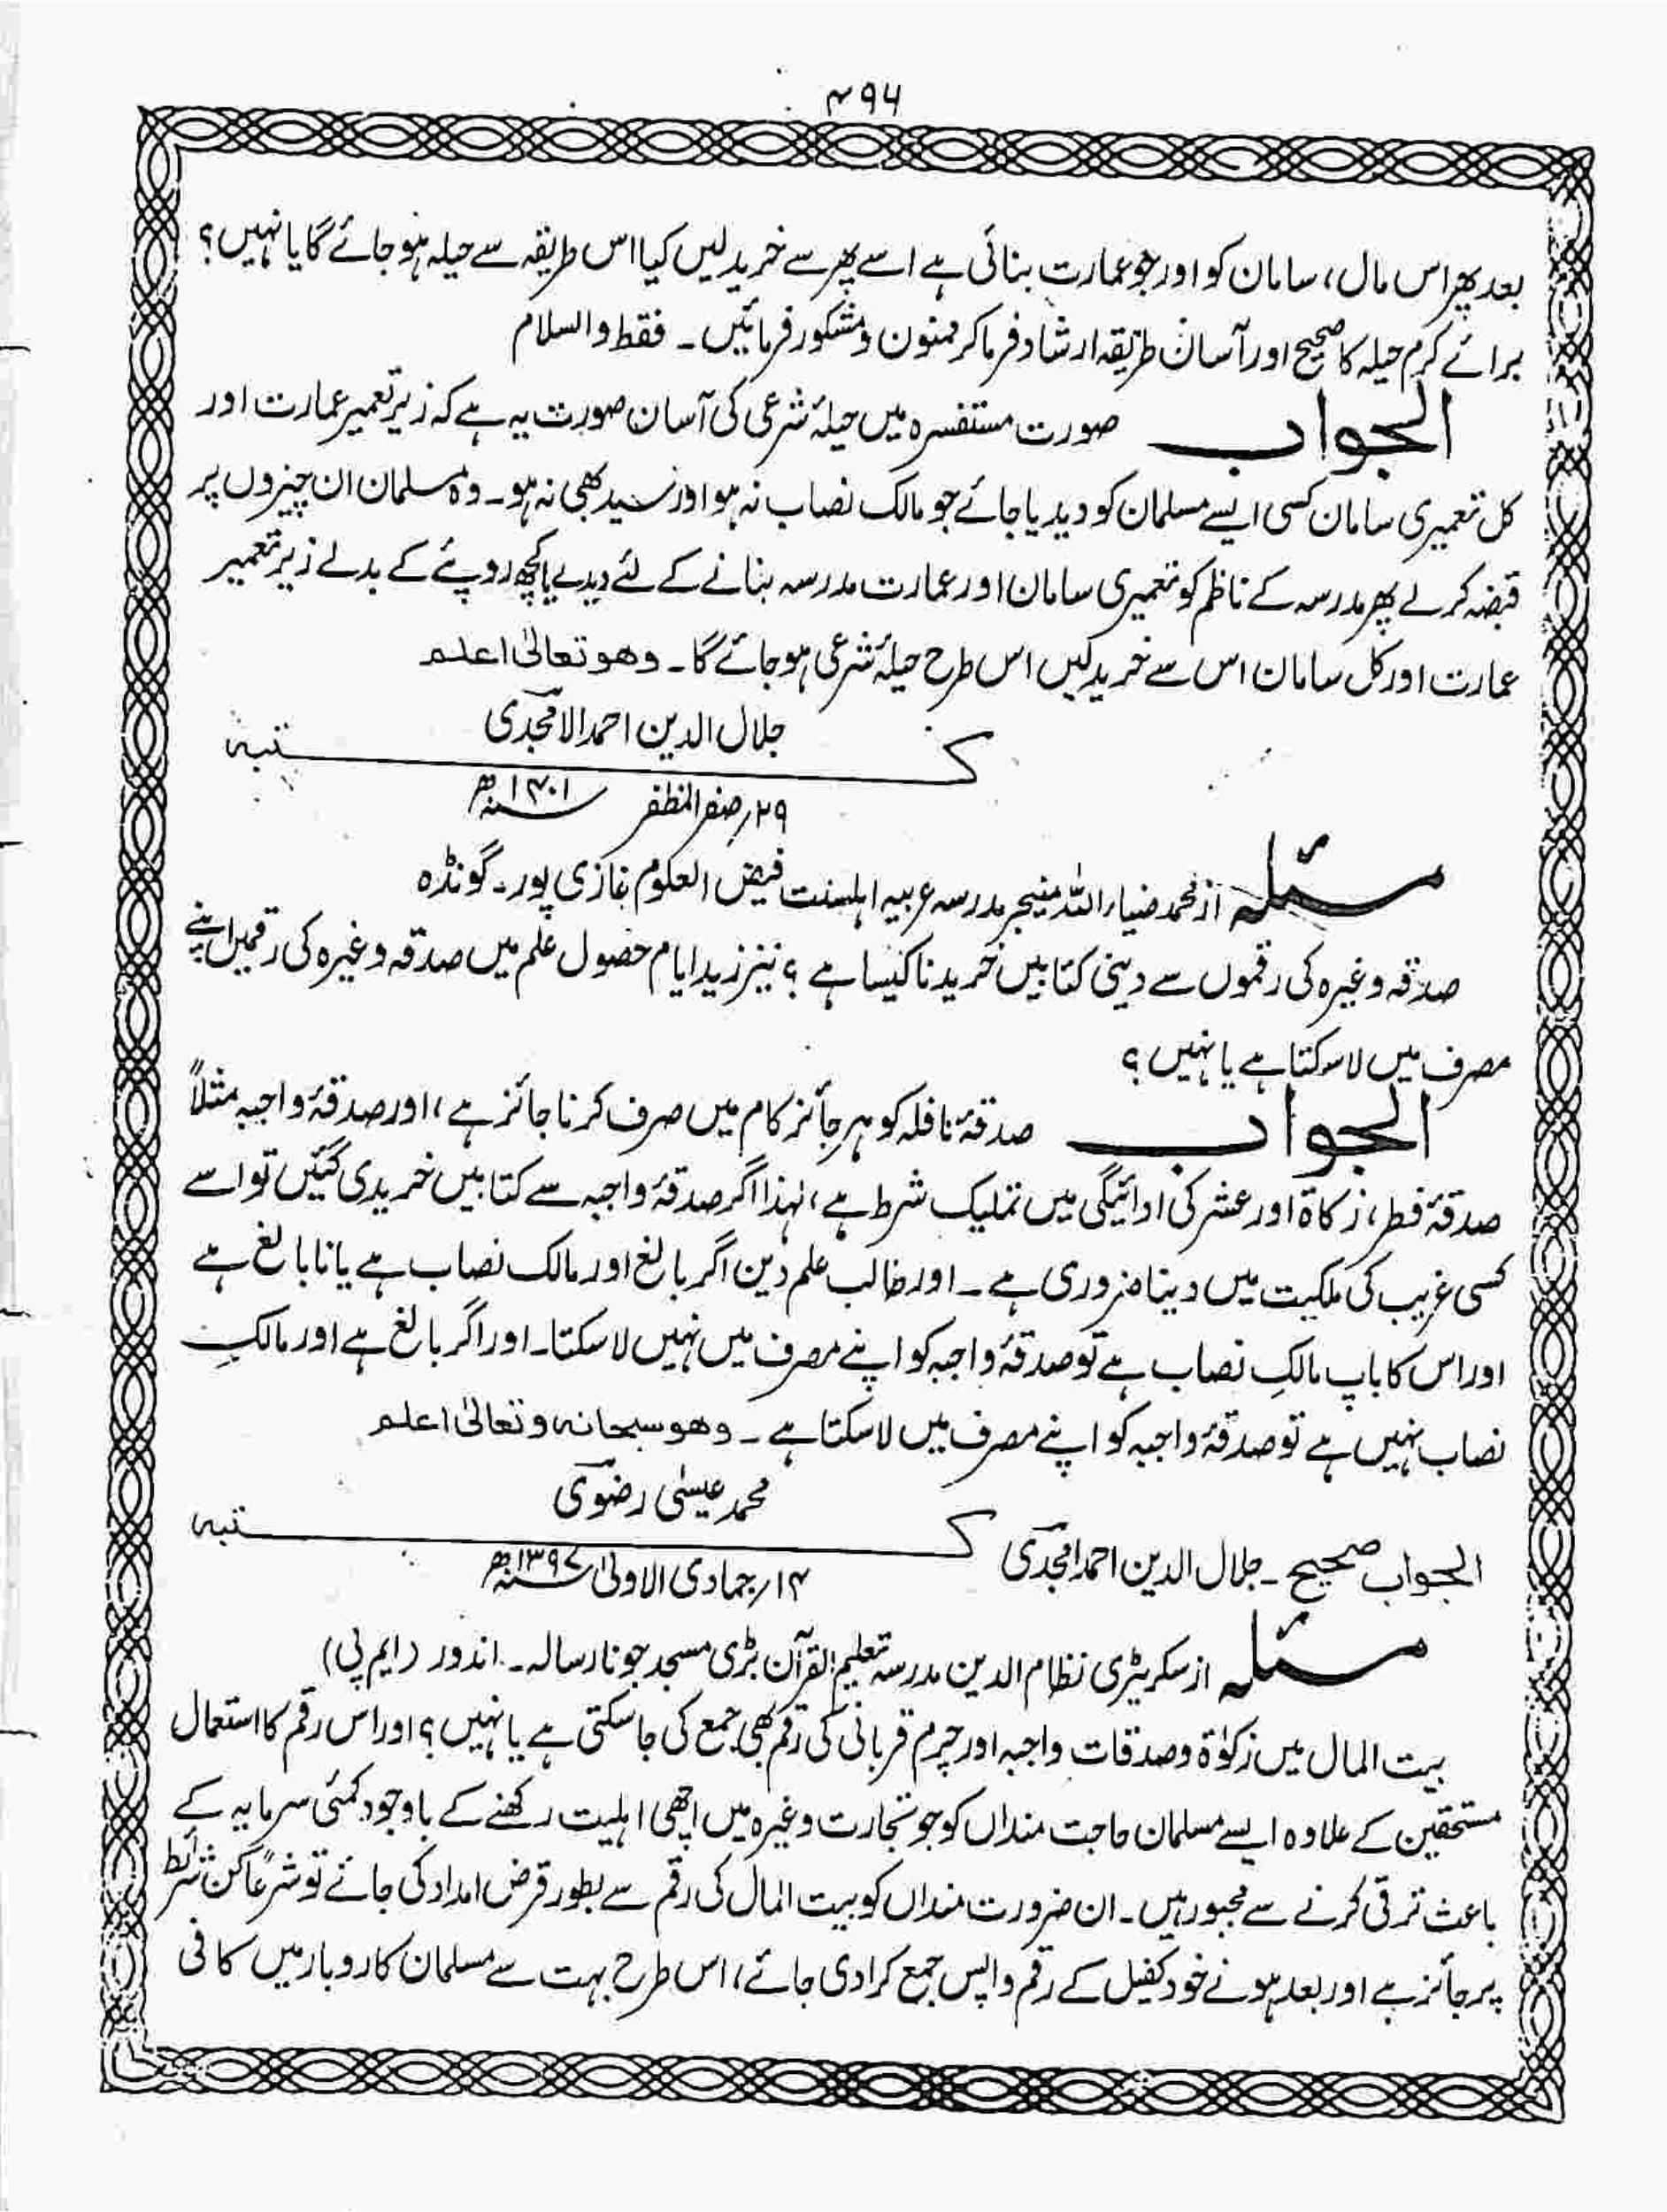 ۴۹۶
بعد پھر اس مال، سامان کو اور جو عمارت بنائی ہے اسے پھر سے خرید لیں کیا اس طریقہ سے حیلہ ہو جائے گا یا نہیں؟
برائے کرم حیلہ کا صحیح اور آسان طریقہ ارشاد فرما کر ممنون و مشکور فرمائیں۔ فقط والسلام
الجواب صورت مستفسرہ میں حیلۂ شرعی کی آسان صورت یہ ہے کہ زیر تعمیر عمارت اور
کل تعمیری سامان کسی ایسے مسلمان کو دیدیا جائے جو مالک نصاب نہ ہو اور سید بھی نہ ہو۔ وہ مسلمان ان چیزوں پر
قبضہ کر لے پھر مدرسہ کے ناظم کو تعمیری سامان اور عمارت مدرسہ بنانے کے لئے دیدے یا کچھ روپئے کے بدلے زیر تعمیر
عمارت اور کل سامان اس سے خرید لیں اس طرح حیلۂ شرعی ہو جائے گا۔ وھو تعالیٰ اعلم
جلال الدین احمد الامجدی
کتبہ
۲۹؍ صفر المظفر ۱۴۰۱ھ
مسئلہ از محمد ضیاء اللہ منیجر مدرسہ عربیہ اہلسنت فیض العلوم غازی پور۔ گونڈہ
صدقہ وغیرہ کی رقموں سے دینی کتابیں خریدنا کیسا ہے؟ نیز زید ایام حصول علم میں صدقہ وغیرہ کی رقمیں اپنے
مصرف میں لا سکتا ہے یا نہیں؟
الجواب صدقۂ نافلہ کو ہر جائز کام میں صرف کرنا جائز ہے، اور صدقۂ واجبہ مثلاً
صدقۂ فطر، زکاۃ اور عشر کی ادائیگی میں تملیک شرط ہے، لہٰذا اگر صدقۂ واجبہ سے کتابیں خریدی گئیں تو اسے
کسی غریب کی ملکیت میں دینا ضروری ہے۔ اور طالب علم دین اگر بالغ اور مالک نصاب ہے یا نابالغ ہے
اور اس کا باپ مالکِ نصاب ہے تو صدقۂ واجبہ کو اپنے مصرف میں نہیں لا سکتا۔ اور اگر بالغ ہے اور مالکِ
نصاب نہیں ہے تو صدقۂ واجبہ کو اپنے مصرف میں لا سکتا ہے۔ وھو سبحانہ و تعالیٰ اعلم
محمد عیسیٰ رضوی
الجواب صحیح۔ جلال الدین احمد امجدی کتبہ
۱۴؍ جمادی الاولیٰ ۱۳۹۷ھ
مسئلہ از سکریٹری نظام الدین مدرسہ تعلیم القرآن بڑی مسجد جونا رسالہ۔ اندور (ایم پی)
بیت المال میں زکوٰۃ و صدقات واجبہ اور چرم قربانی کی رقم بھی جمع کی جا سکتی ہے یا نہیں؟ اور اس رقم کا استعمال
مستحقین کے علاوہ ایسے مسلمان حاجت منداں کو جو تجارت وغیرہ میں اچھی اہلیت رکھنے کے باوجود کمئی سرمایہ کے
باعث ترقی کرنے سے مجبور ہیں۔ ان ضرورت منداں کو بیت المال کی رقم سے بطور قرض امداد کی جائے تو شرعاً کن شرائط
پر جائز ہے اور بعد ہونے خود کفیل کے رقم واپس جمع کرا دی جائے، اس طرح بہت سے مسلمان کاروبار میں کافی